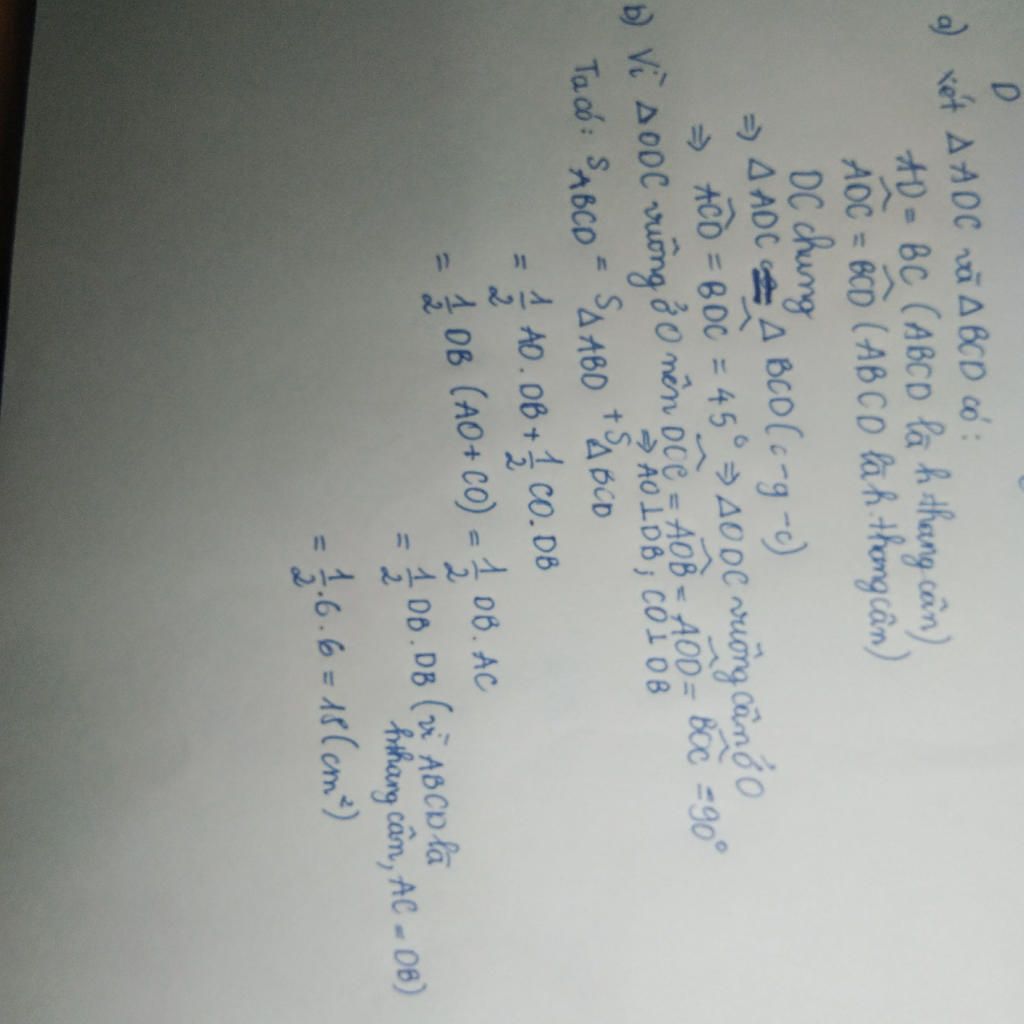 D
a) xét Δ ADC và Δ BCD có:
AD = BC (ABCD là h thang cân)
ADC = BCD (ABCD là h. thang cân)
DC chung
=> Δ ADC = Δ BCD (c-g-c)
=> ACD = BDC = 45° => Δ ODC vuông cân ở O
b) Vì Δ ODC vuông ở O nên DOC = AOB = AOD = BOC = 90°
=> AO ⊥ DB; CO ⊥ DB
Ta có: S ABCD = S Δ ABD + S Δ BCD
= 1/2 AO. DB + 1/2 CO. DB
= 1/2 DB (AO + CO) = 1/2 DB. AC
= 1/2 DB. DB (vì ABCD là
hthang cân, AC = DB)
= 1/2 . 6 . 6 = 18 (cm²)